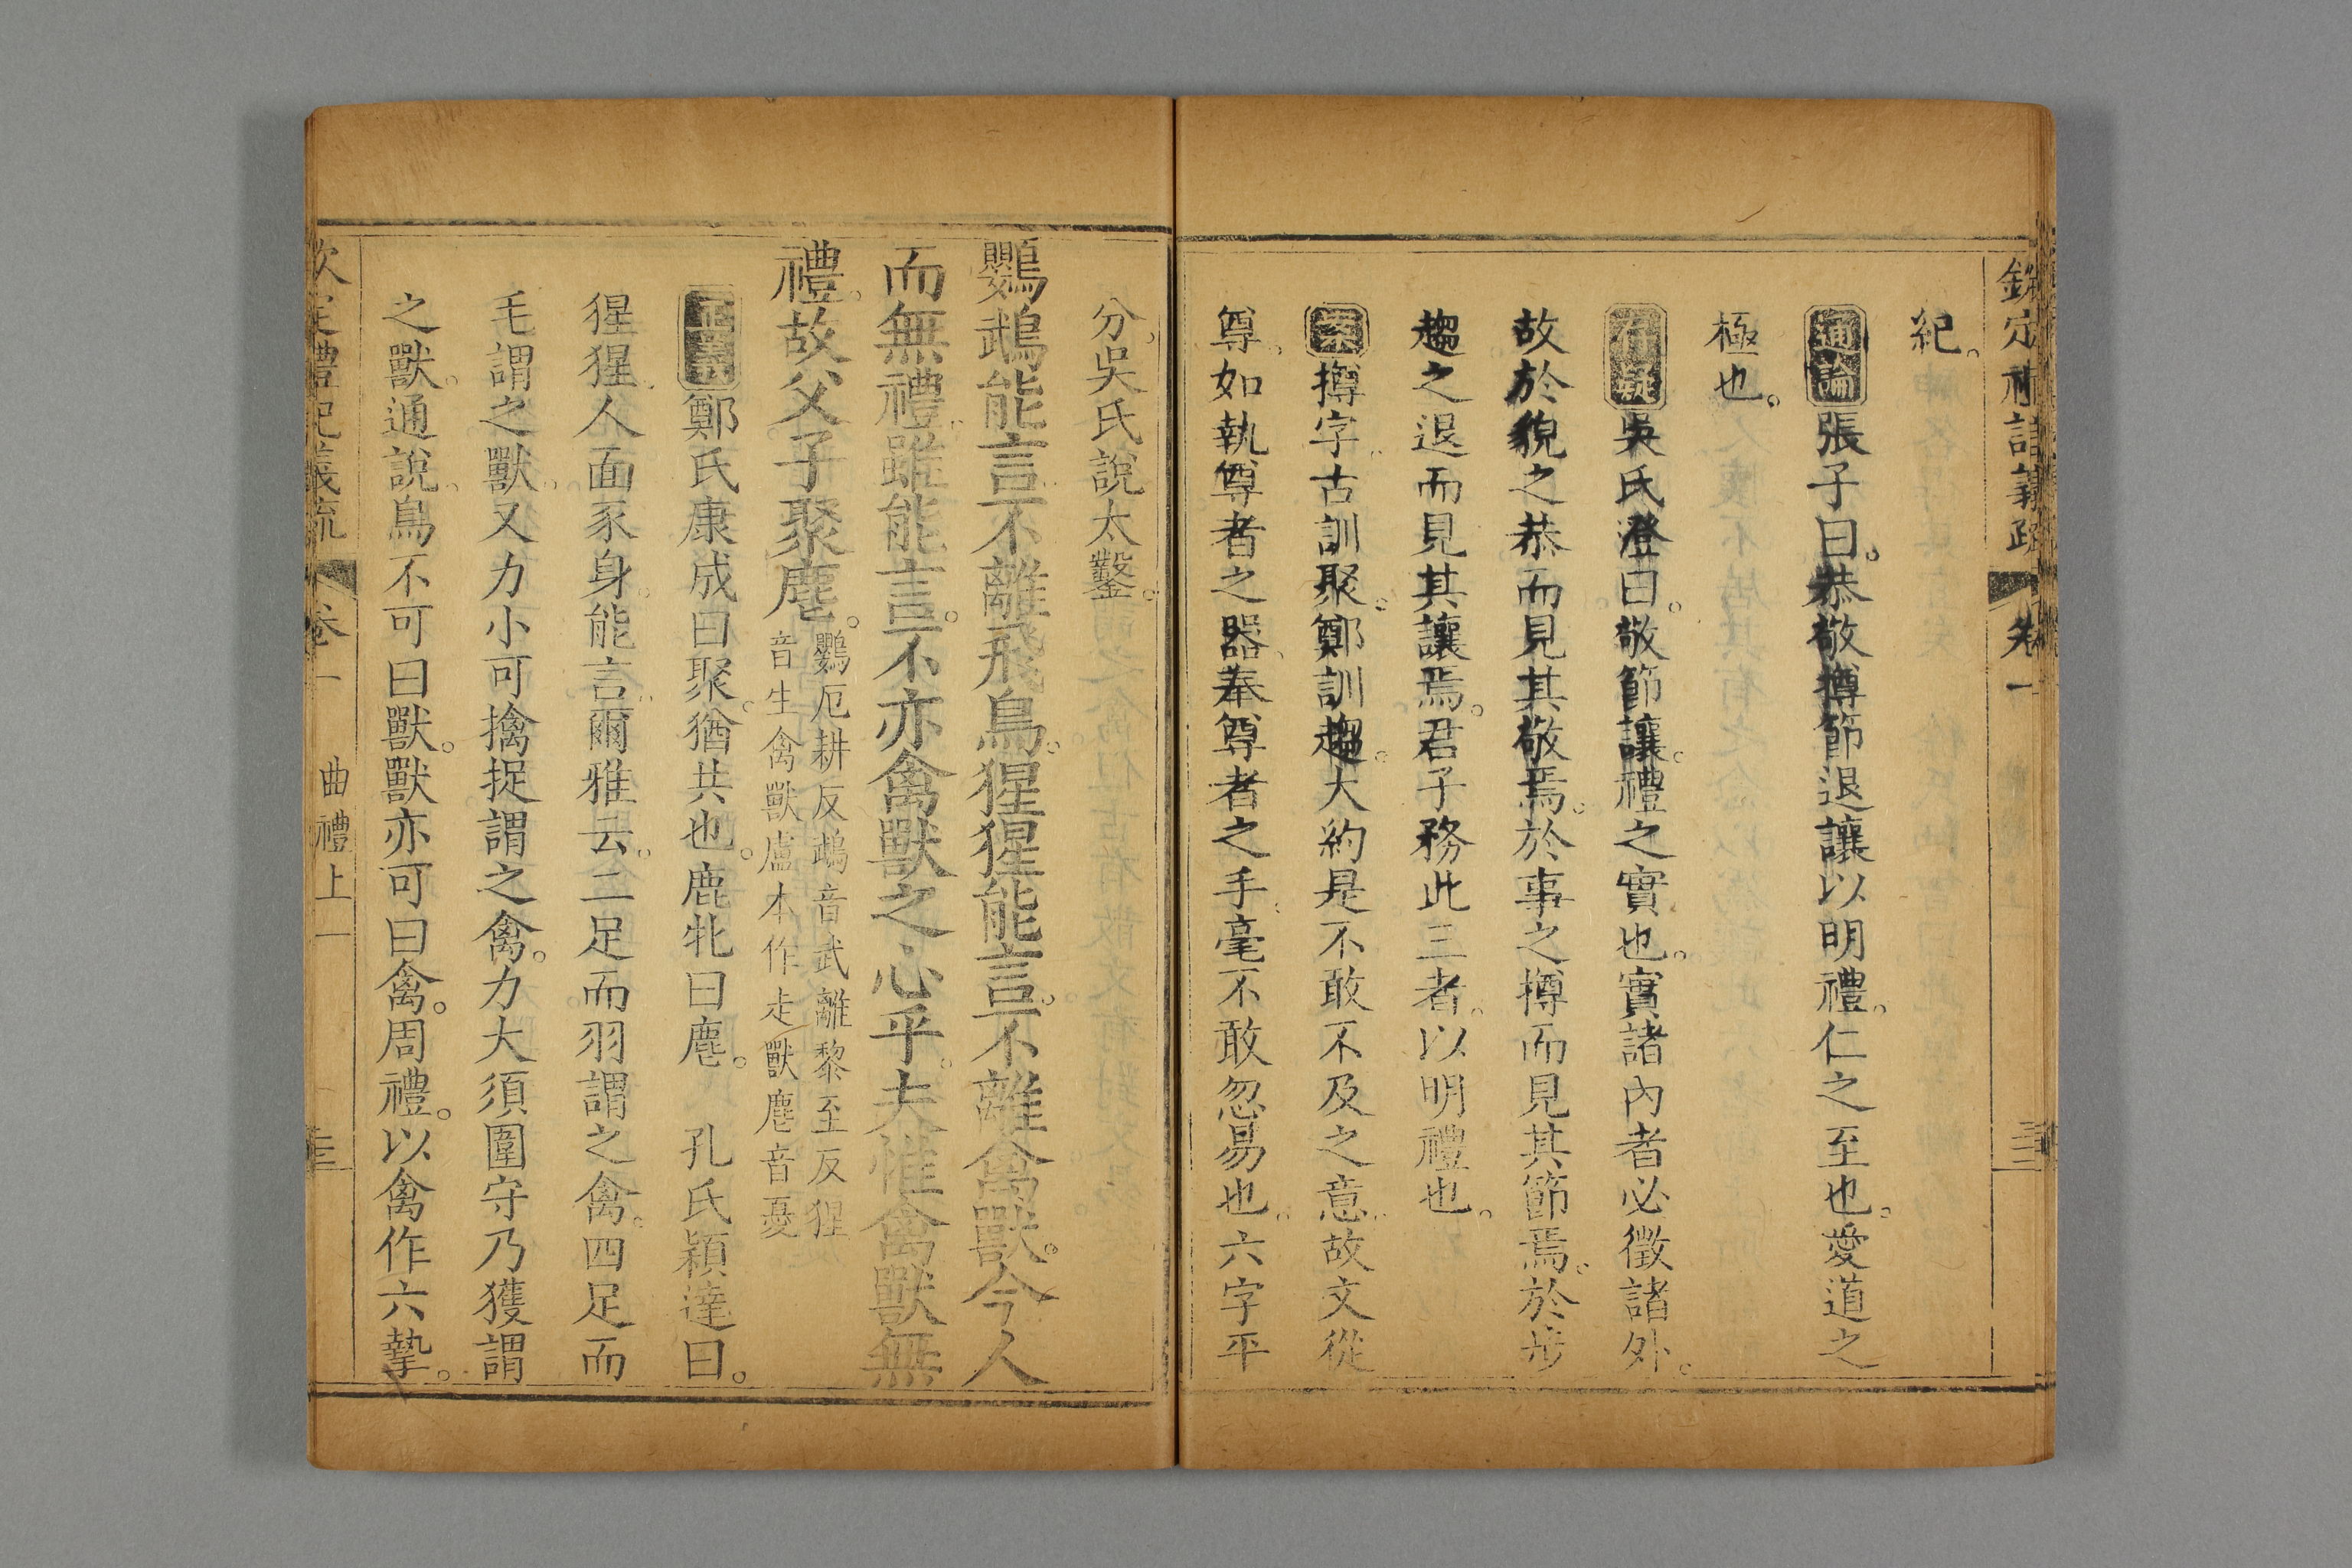 欽定禮記義疏 卷一
紀。
通論張子曰。恭敬撙節退讓以明禮。仁之至也。愛道之
極也。
存疑吳氏澄曰。敬節讓。禮之實也。實諸內者必徵諸外。
故於貌之恭而見其敬焉。於事之撙而見其節焉。於步
趨之退而見其讓焉。君子務此三者。以明禮也。
案撙字。古訓聚。鄭訓趨。大約是不敢不及之意。故文從
尊。如執尊者之器。奉尊者之手。毫不敢忽易也。六字平
分。吳氏說太鑿。
鸚鵡能言。不離飛鳥。猩猩能言。不離禽獸。今人
而無禮。雖能言。不亦禽獸之心乎。夫惟禽獸無
禮。故父子聚麀。
鸚厄耕反鵡音武離黎至反猩
音生禽獸盧本作走獸麀音憂
正義鄭氏康成曰聚。猶共也。鹿牝曰麀。 孔氏穎達曰。
猩猩。人面豕身。能言。爾雅云。二足而羽謂之禽。四足而
毛謂之獸。又力小可擒捉謂之禽。力大須圍守乃獲謂
之獸。通說。鳥不可曰獸。獸亦可曰禽。周禮。以禽作六摯。
欽定禮記義疏 卷一 曲禮上一